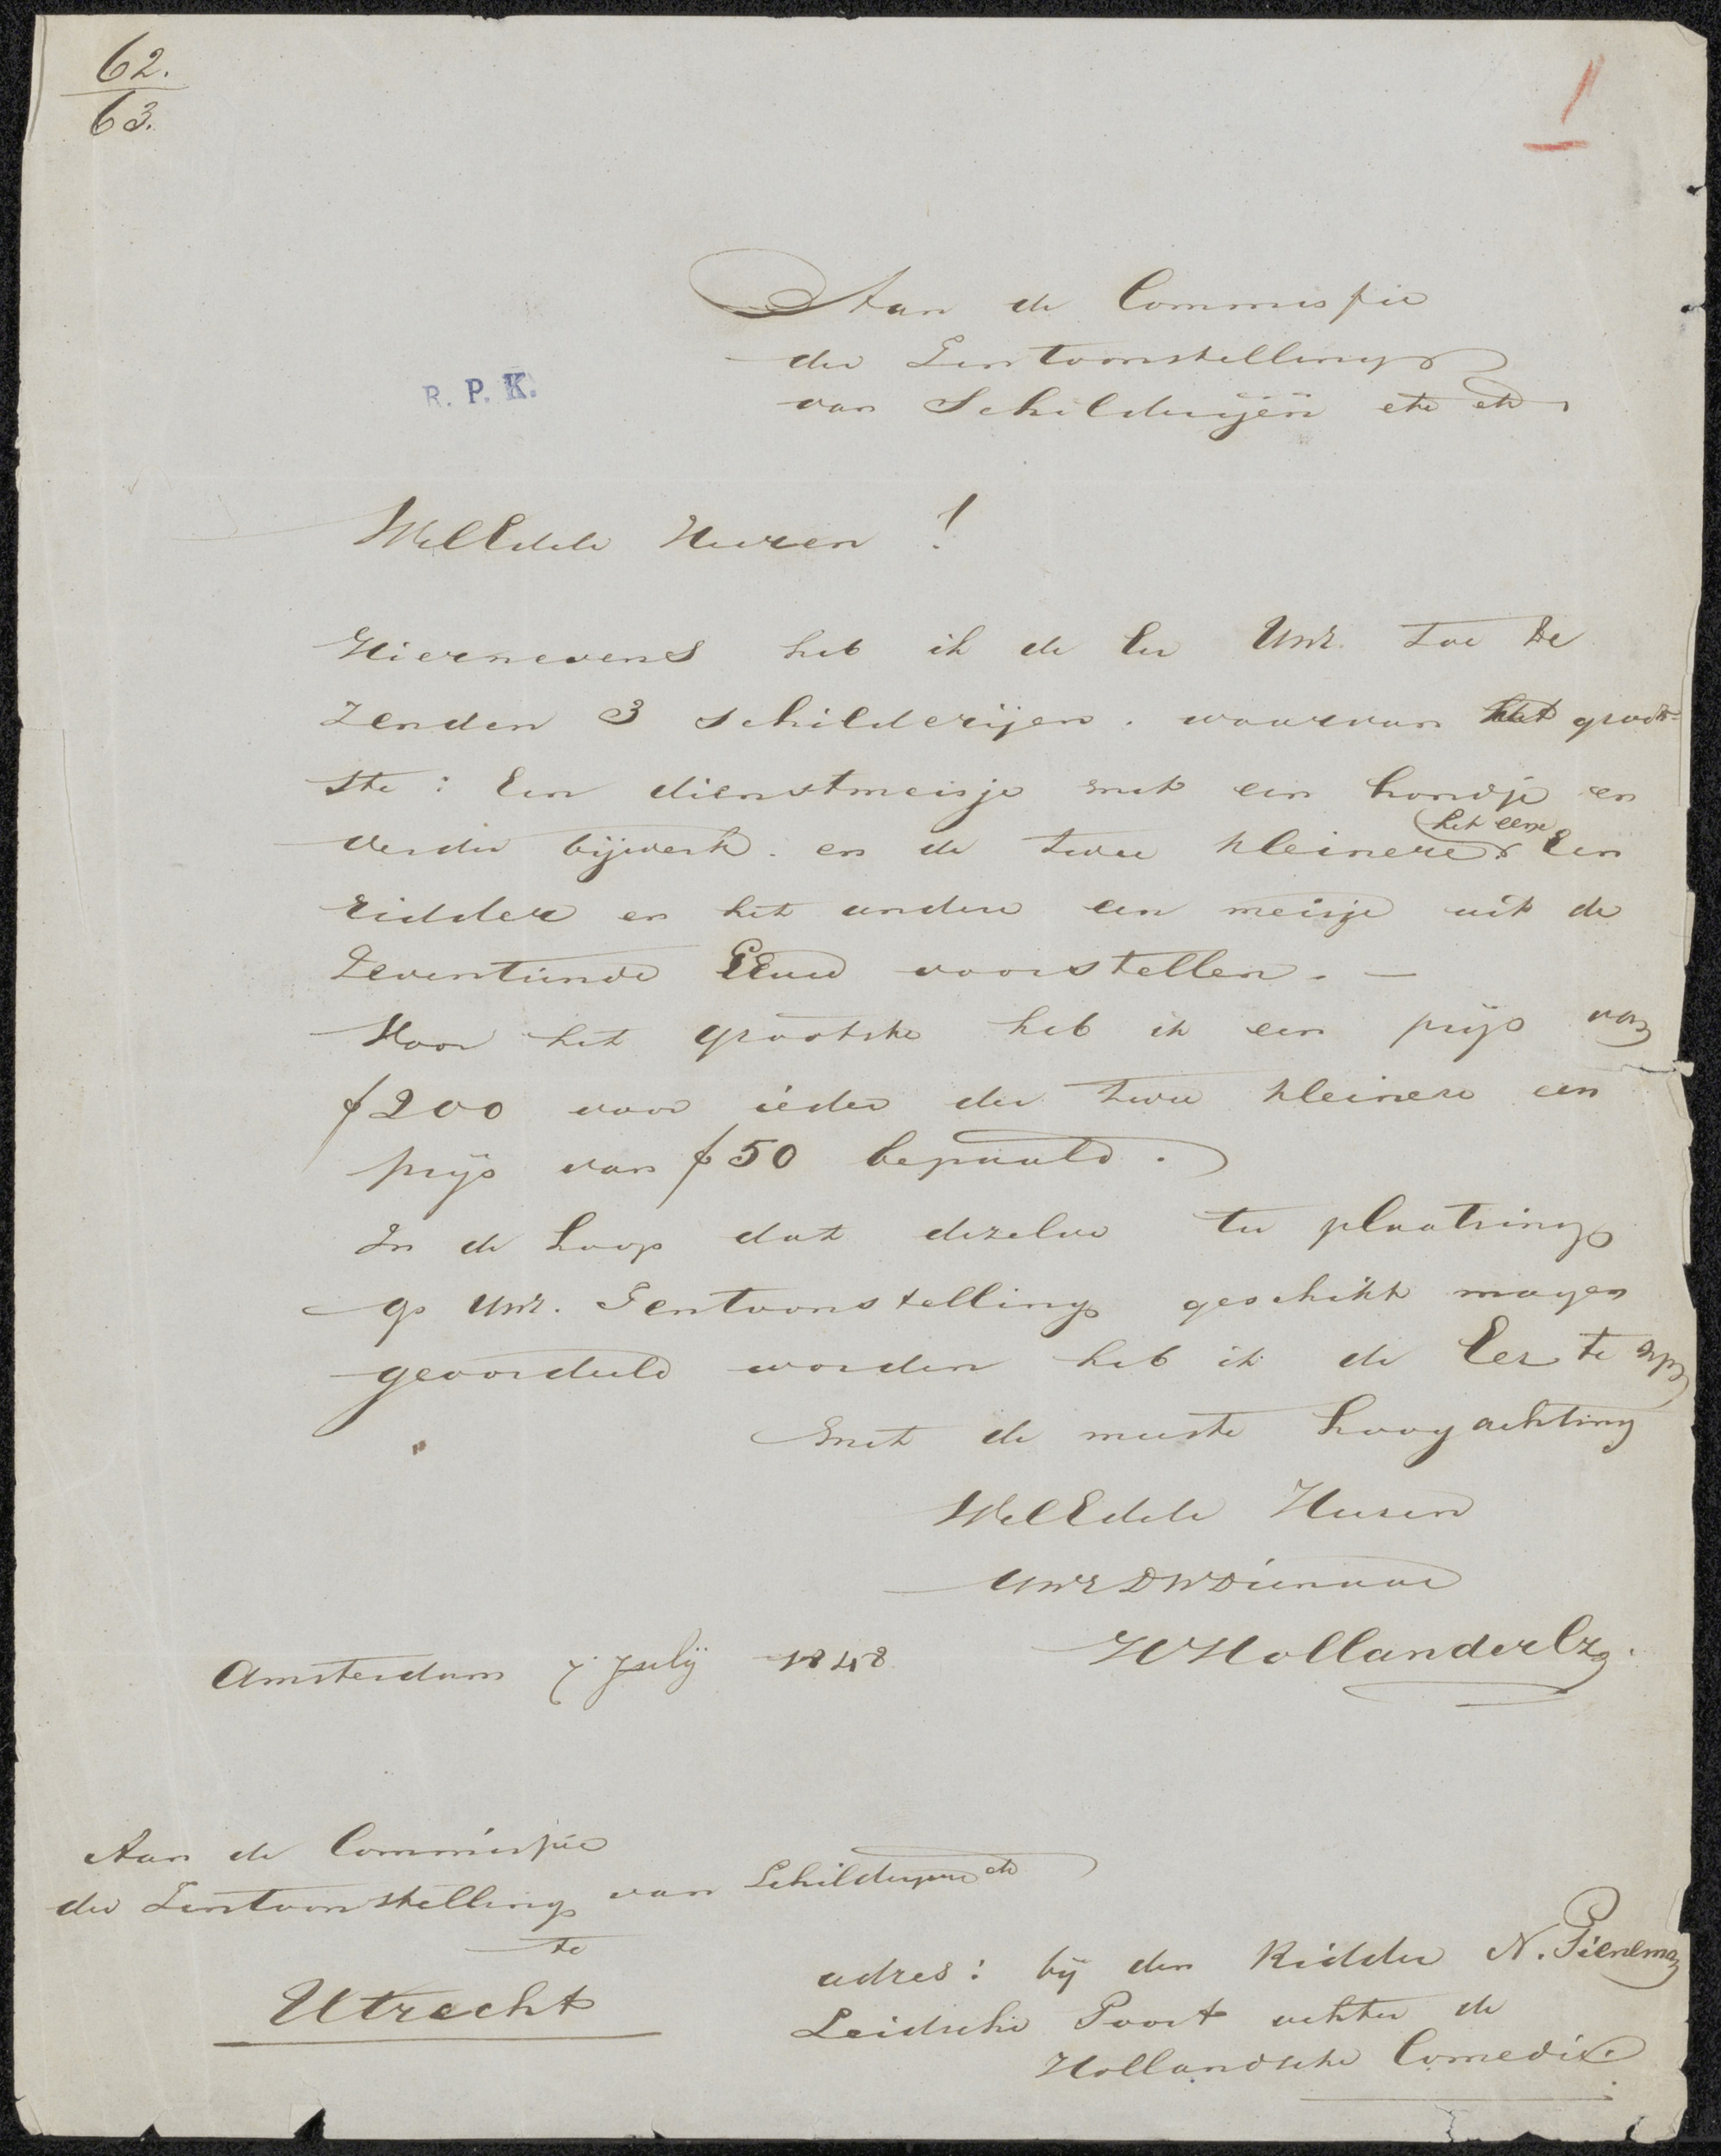 62.
63.
1
Aan de Commissie
der Tentoonstelling
van Schilderijën etc etc
R. P. K.
WelEdele Heeren !
Hiernevens heb ik de Eer UwE. toe te
zenden 3 schilderijen. waarvan het groot-
ste : Een dienstmeisje met een hondje en
verder bijwerk. en de twee kleinere het eene Een
ridder en het andere een meisje uit de
Zeventiende Eeuw voorstellen. —
Voor het grootste heb ik een prijs van
f200 voor ieder der twee kleinere een
prijs van f50 bepaald.
In de hoop dat dezelve ter plaatsing
op UwE. Tentoonstelling geschikt mogen
geoordeeld worden heb ik de Eer te zijn
met de meeste hoogachting
WelEdele Heeren
UWEDWDienaar
HHollanderCz.
Amsterdam 7 Julij 1848
Aan de Commissie
der Tentoonstelling van Schilderijen etc
te
Utrecht
adres : bij den Ridder N. Pieneman
Leidsche Poort achter de
Hollandsche Comedie.